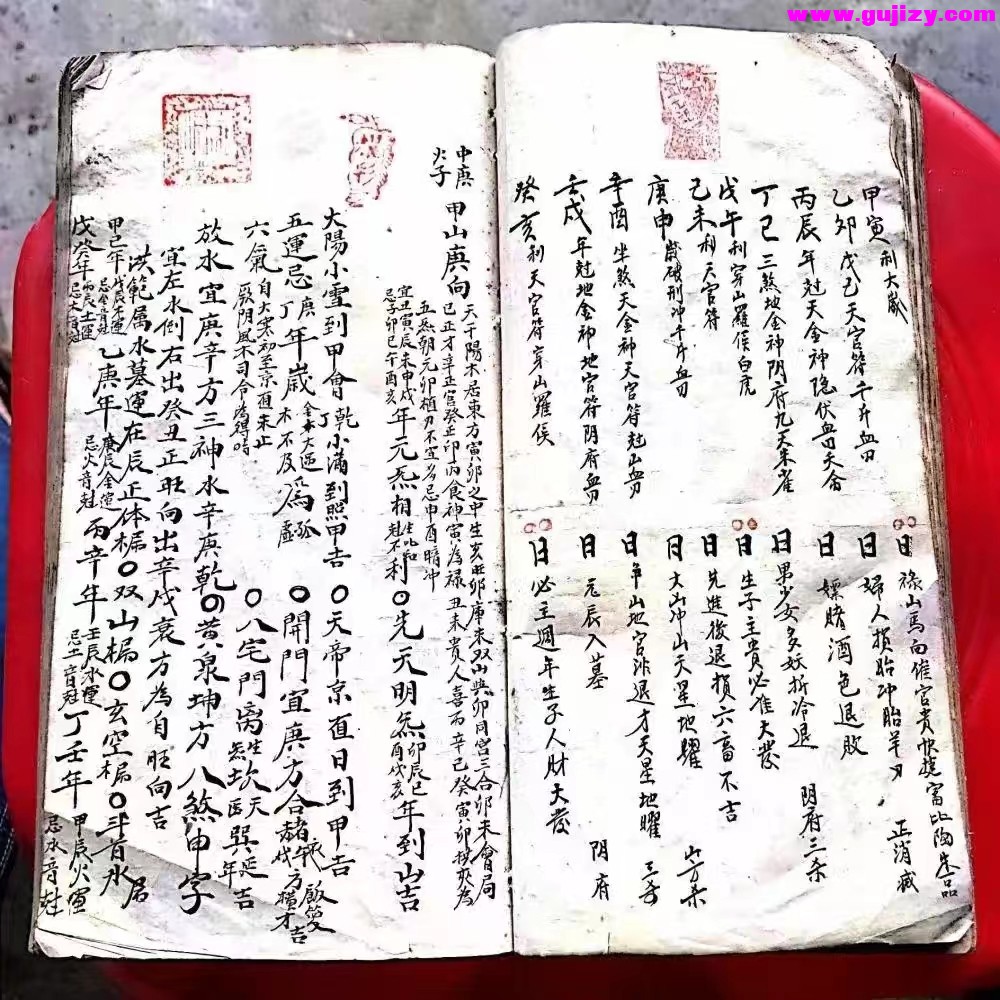 www.gujizy.com
甲寅利大歲
日 禄山馬向催官貴
乙卯戊己天官符千斤血刃
日 婦人損胎冲胎羊刃 正消滅
丙辰年尅天金神隐伏
日 嫖賭酒色退敗
丁巳三煞地金神阴府九天朱雀
日 男少女多妖折冷退 阴府三杀
戊午利穿山羅侯白虎
日 生子主貴必准大發
己未利天官符
日 先進後退損六畜不吉
庚申歲破刑冲千斤血刃
日 大山冲山天星地曜
辛酉坐煞天金神天宫符尅山血刃
日 争山地官非退才天星地曜 三杀
壬戌年尅地金神地官符阴府血刃
日 元辰入墓 阴府
癸亥利天官符穿山羅侯
日 必主週年生子人財大發
中庚
火子
甲山庚向
天干陽木居東方寅卯之中生亥旺卯庫未双山與卯同宫三合卯未會局
己正才辛正官癸正印丙食神寅為禄丑未貴人喜而辛己癸寅卯
五煞朝元卯植刀不宜多忌申酉暗冲
宜丑寅辰未申戌
忌子卯巳午酉亥
年元炁相生比和
尅不利
〇先天明炁卯辰巳
酉戌亥
年到山吉
太陽小雪到甲會乾小满到照甲吉 〇天帝京直日到甲吉
五運忌庚丁年歲金木大运
木不及
為孤虚
〇開門宜庚方合
六氣自大寒初至京直未止
厥阴風木司令為得時
〇八宅門離生炁坎天医巽延年吉
放水宜庚辛方三神水辛庚乾〇黄泉坤方八煞申字
宜左水倒右出癸丑正旺向出辛戌衰方為自旺向吉
洪範属水墓運在辰正体木 〇双山木 〇玄空木 〇斗首水
甲己年戊辰木運
忌金音尅
乙庚年庚辰金運
忌火音尅
丙辛年壬辰水運
忌土音尅
丁壬年甲辰火運
忌水音尅
戊癸年丙辰土運
忌木音尅